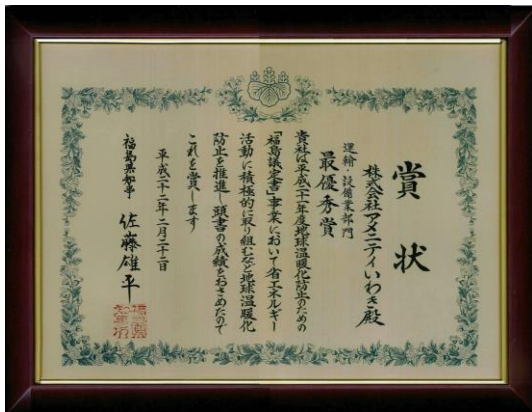 賞状
株式会社アメニティいわき殿
運輸・設備業部門
最優秀賞
貴社は平成二十一年度地球温暖化防止のための
「福島議定書」事業において省エネルギー
活動に積極的に取り組むなど地球温暖化
防止を推進し頭書の成績をおさめたので
これを賞します
平成二十二年二月二十二日
福島県知事 佐藤雄平